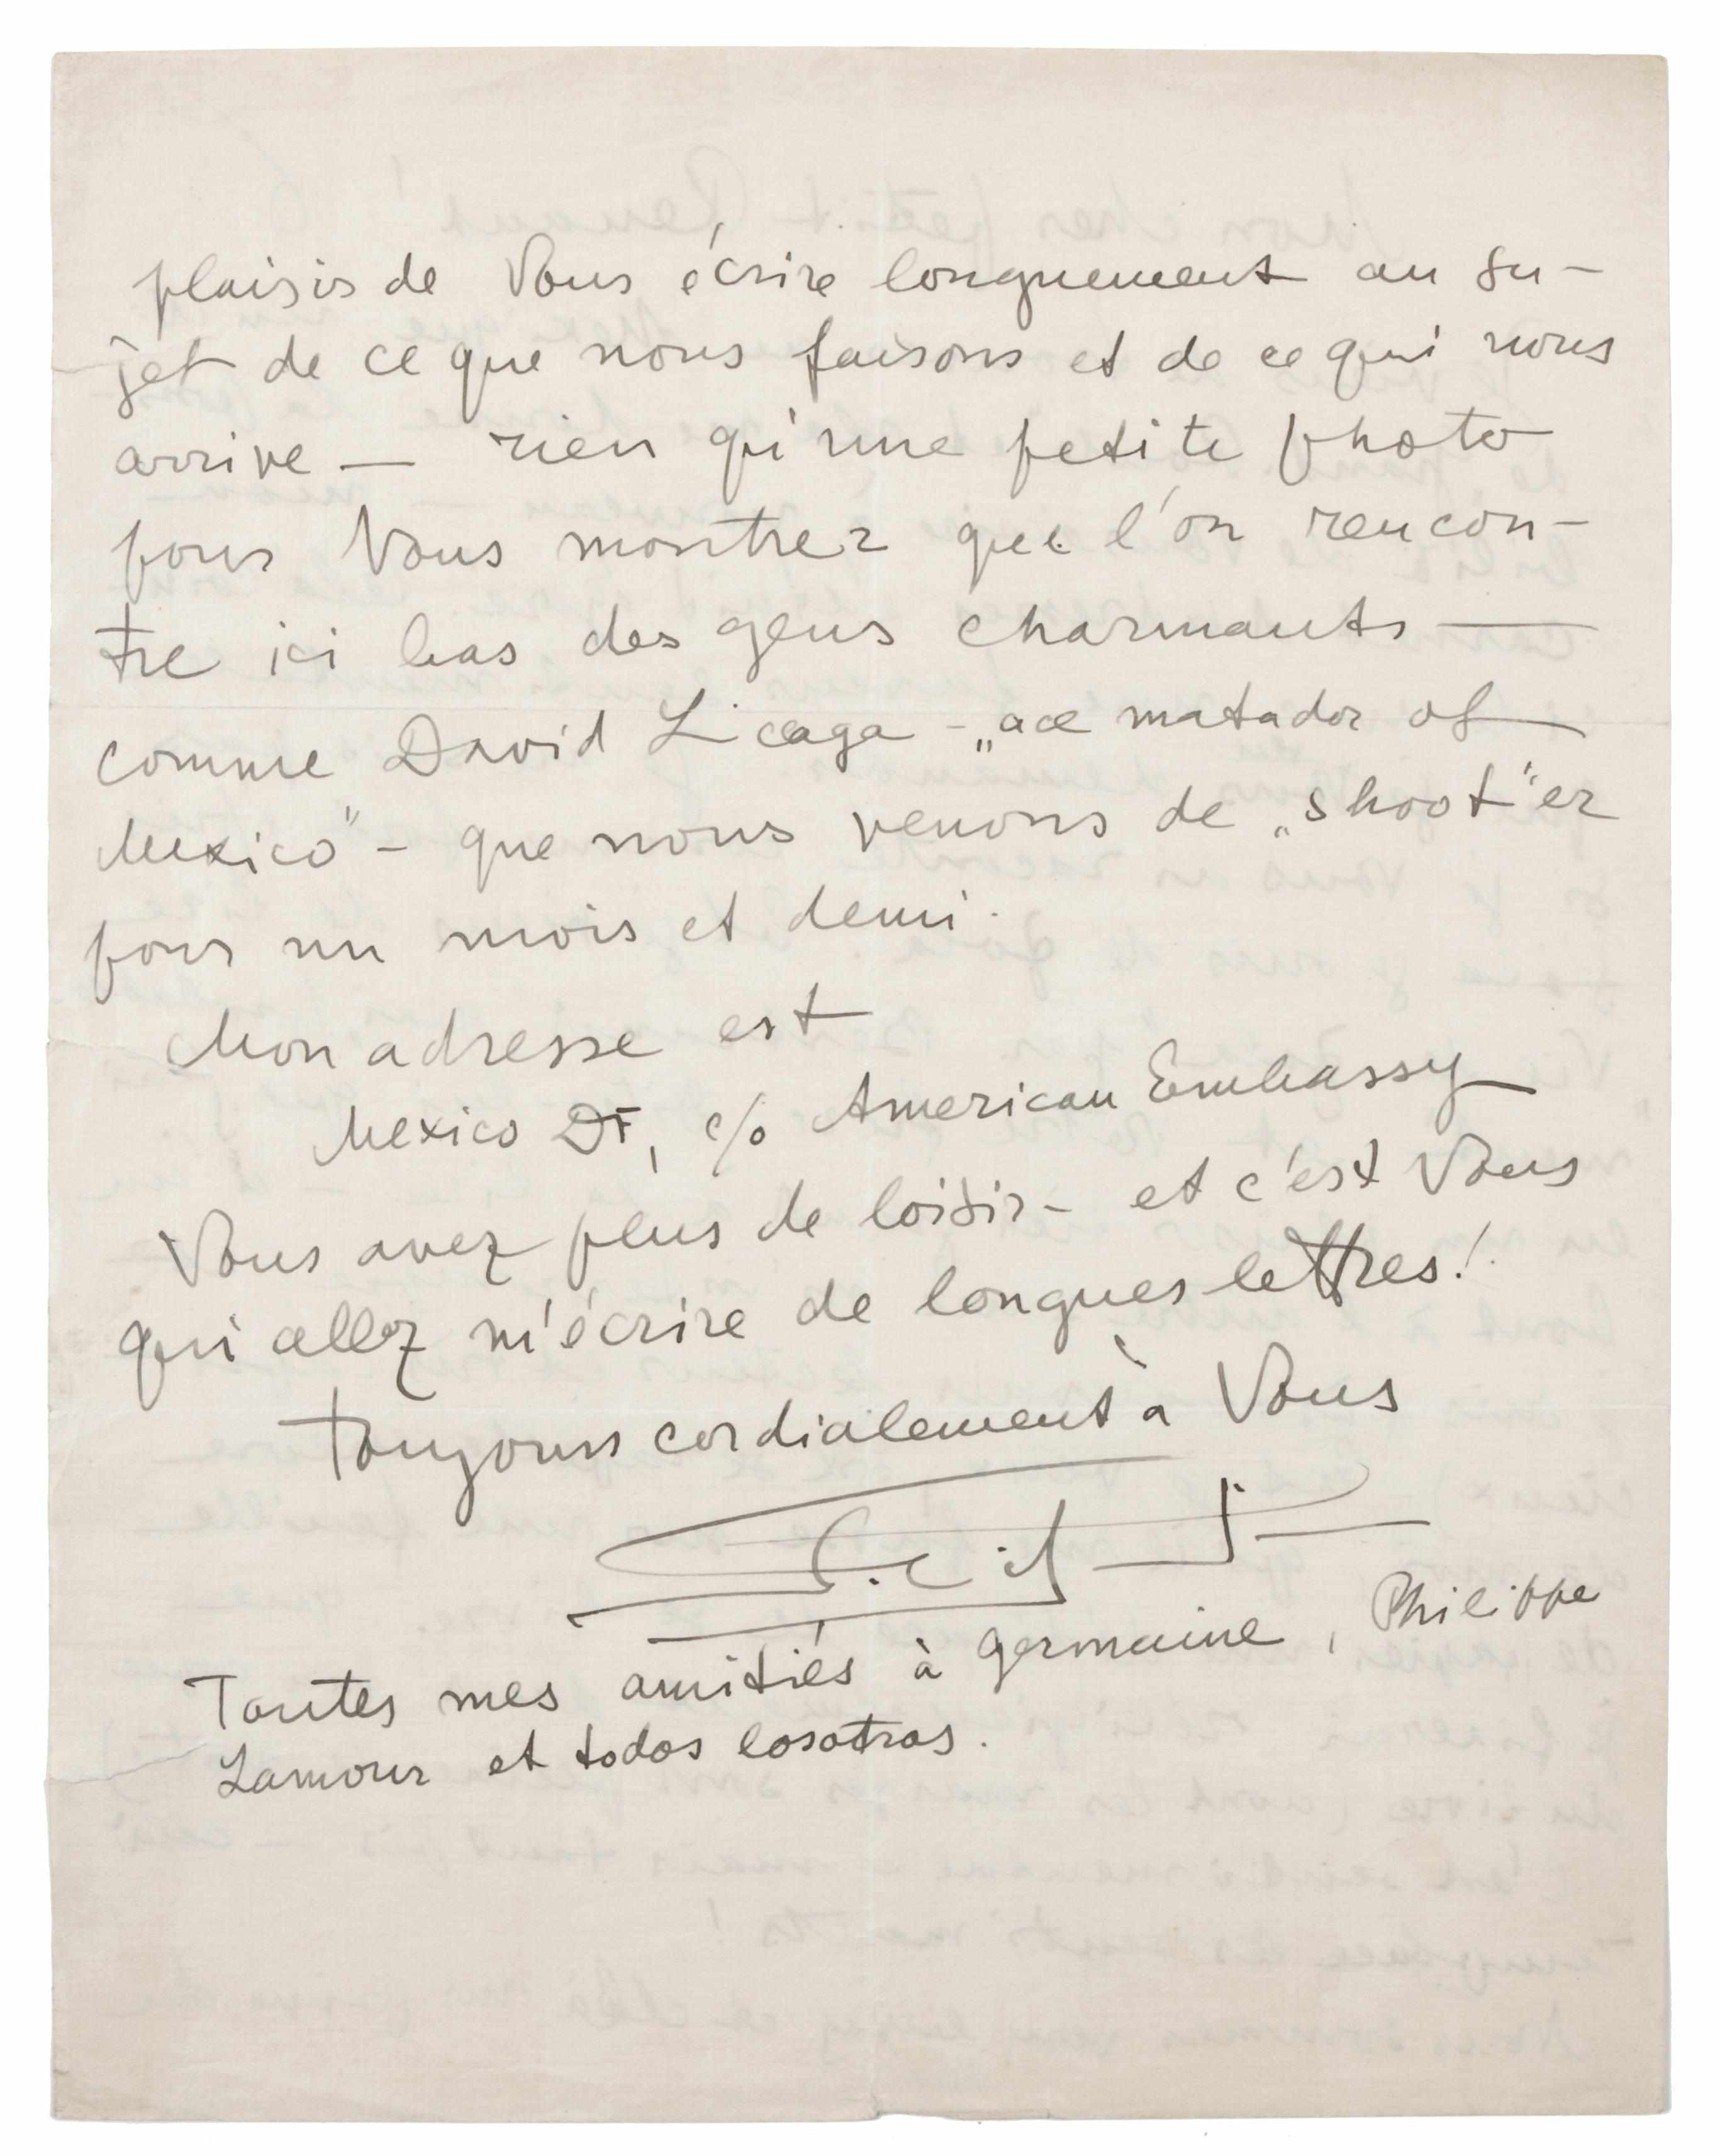 plaisir de Vous écrire longuement au su-
jet de ce que nous faisons et de ce qui nous
arrive — rien qu'une petite photo
pour Vous montrer que l'on rencon-
tre ici bas des gens charmants —
comme David Liceaga - „ace matador of
Mexico" - que nous venons de „shoot"er
pour un mois et demi.
Mon adresse est
Mexico DF, c/o American Embassy
Vous avez plus de loisir - et c'est Vous
qui allez m'écrire de longues lettres!
Toujours cordialement à Vous
Toutes mes amitiés à Germaine, Philippe
Lamour et todos los otros.